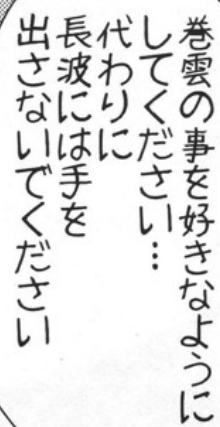 巻雲の事を好きなように
してください…
代わりに
長波には手を
出さないでください